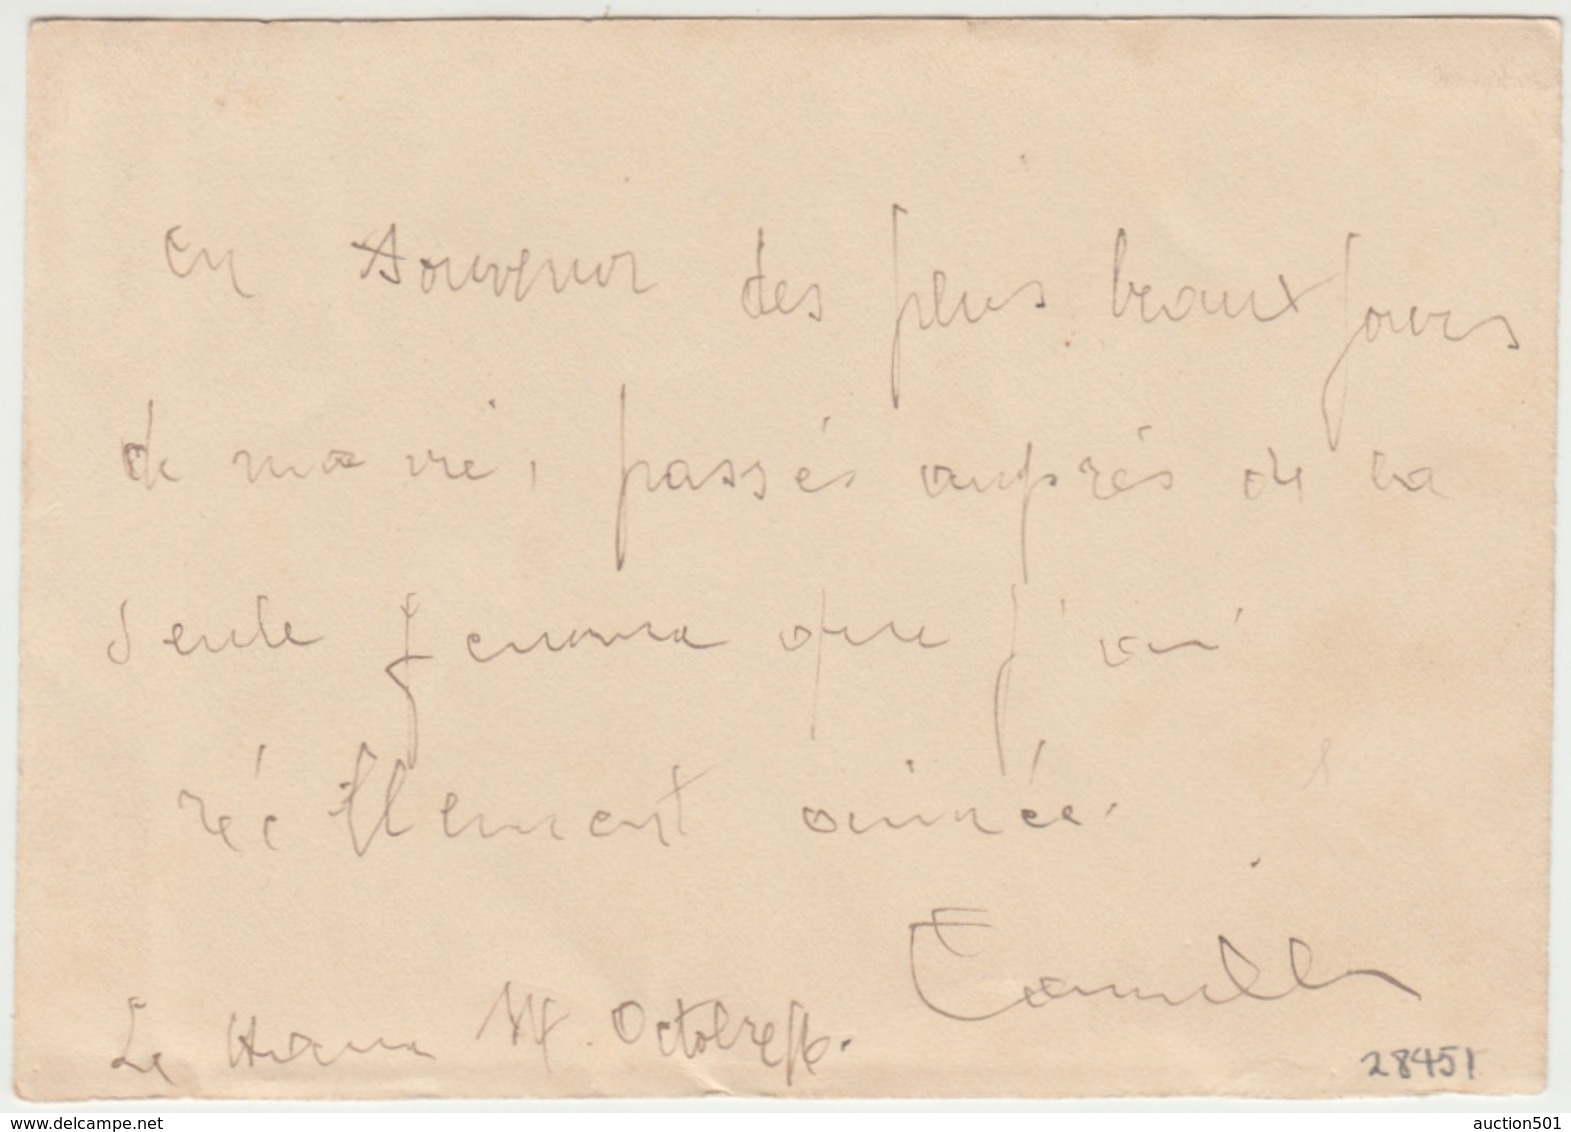 En souvenir des plus beaux jours
de ma vie, passés auprès de la
seule femme que j'ai
réellement aimée.
Camille
Le Havre Octobre
28451
www.delcampe.net
auction501